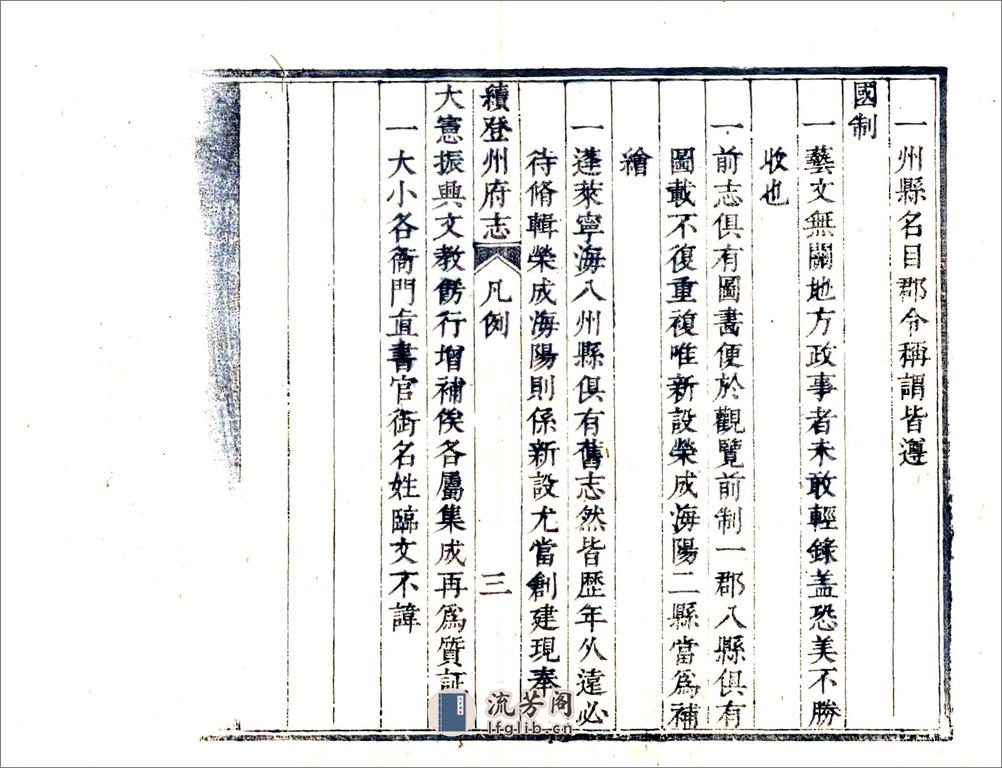 一州縣名目郡今稱謂皆遵
國制
一藝文無關地方政事者未敢輕錄盖恐美不勝
收也
一前志俱有圖畫便於觀覽前制一郡八縣俱有
圖載不復重複唯新設榮成海陽二縣當爲補
繪
一蓬萊寧海八州縣俱有舊志然皆歷年久遠必
待脩輯榮成海陽則係新設尤當創建現奉
續登州府志 凡例 三
大憲振興文教飭行增補俟各屬集成再爲質証
一大小各衙門直書官銜名姓臨文不諱
流芳阁
lfglib.cn